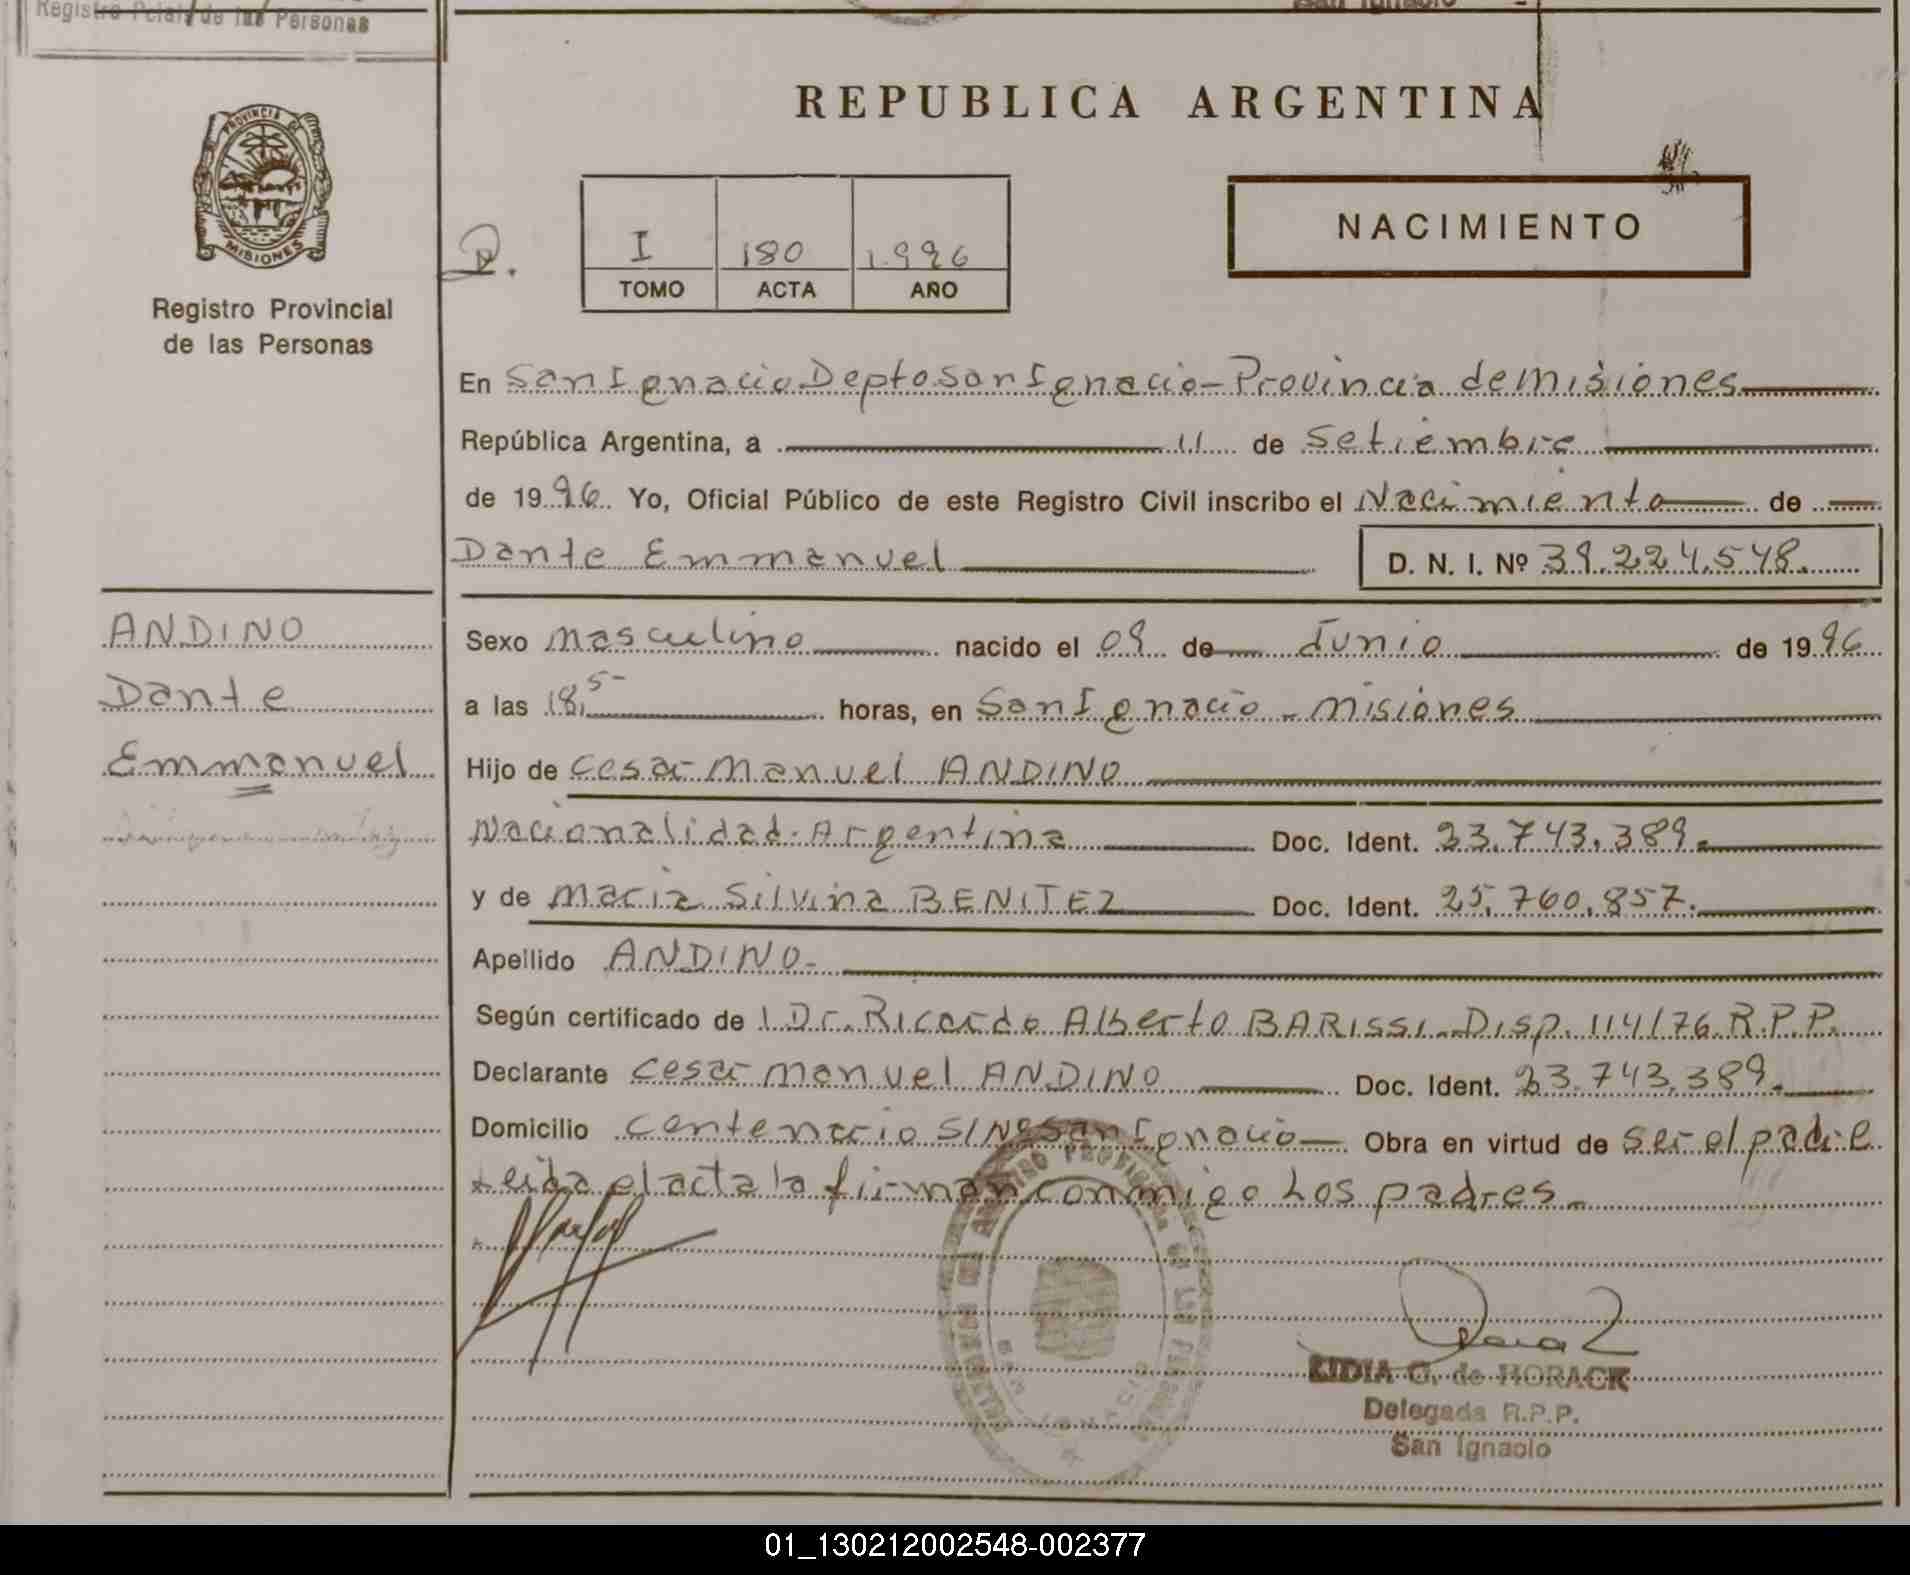 Registro Pcial. de las Personas
San Ignacio
REPUBLICA ARGENTINA
PROVINCIA DE
MISIONES
Registro Provincial
de las Personas
I 180 1.996
TOMO ACTA AÑO
NACIMIENTO
En San Ignacio Depto San Ignacio - Provincia de Misiones
República Argentina, a 11 de Setiembre
de 1996. Yo, Oficial Público de este Registro Civil inscribo el Nacimiento de
Dante Emmanuel D. N. I. Nº 39.224.548.
ANDINO
Dante
Emmanuel
Sexo Masculino nacido el 09 de Junio de 1996
a las 18,5- horas, en San Ignacio - Misiones
Hijo de Cesar Manuel ANDINO
Nacionalidad: Argentina Doc. Ident. 23.743.389.
y de Maria Silvina BENITEZ Doc. Ident. 25.760.857.
Apellido ANDINO-
Según certificado de l Dr. Ricardo Alberto BARISSI - Disp. 114/76 R.P.P.
Declarante Cesar Manuel ANDINO Doc. Ident. 23.743.389.
Domicilio Centenario S/Nº San Ignacio Obra en virtud de ser el padre
Leida el acta la firman conmigo Los padres.-
LIDIA G. de HORACK
Delegada R.P.P.
San Ignacio
01_130212002548-002377